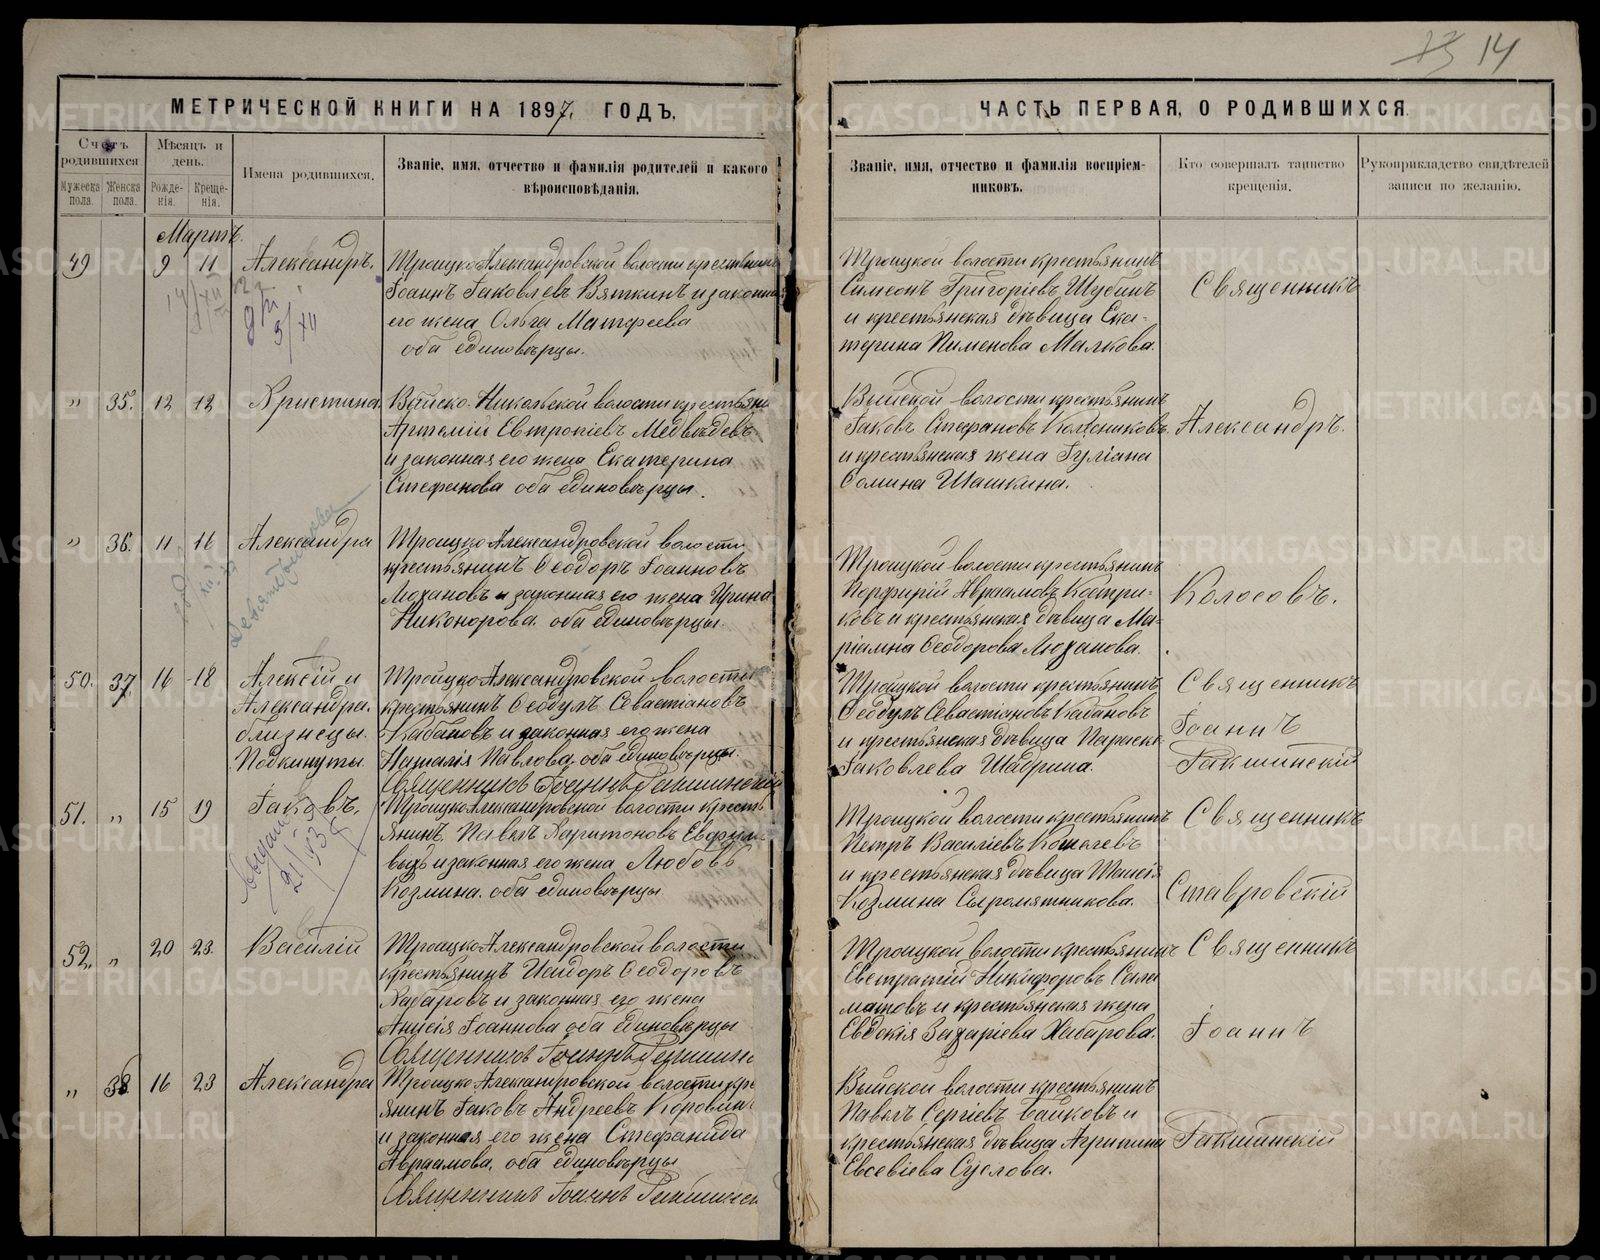 14
МЕТРИЧЕСКОЙ КНИГИ НА 1897. ГОДЪ,
Счетъ родившихся
Мѣсяцъ и день.
Имена родившихся.
Званіе, имя, отчество и фамилія родителей и какого вѣроисповѣданія.
Мужеска пола.
Женска пола.
Рожде-
нія.
Креще-
нія.
Мартъ.
49 9 11 Александръ.
Троицко Александровской волости крестьянинъ
Іоаннъ Іаковлевъ Вяткинъ и законная
его жена Ольга Матфеева
оба единовѣрцы.
" 35. 12 12 Христина.
Выйско-Никольской волости крестьянинъ
Артемій Евтропіевъ Медвѣдевъ
и законная его жена Екатерина
Стефанова оба единовѣрцы.
" 36. 11 16 Александра
Троицко Александровской волости
крестьянинъ Ѳеодоръ Іоанновъ
и законная его жена Ирина
Никонорова. оба единовѣрцы.
50. 37 16 18 Алексій и
Александра.
близнецы.
Подкинуты.
Троицко Александровской волости
крестьянинъ Ѳеодулъ Севастіановъ
Кабановъ и законная его жена
Наталія Павлова, оба единовѣрцы.
Священникъ Іоаннъ Гакшинскій
51. " 15 19 Іаковъ.
Троицко Александровской волости крестьянинъ
Павелъ Харитоновъ
и законная его жена Любовь
Козмина. оба единовѣрцы
52. " 20 23. Василій
Троицко Александровской волости
крестьянинъ Исидоръ Ѳеодоровъ
Хабаровъ и законная его жена
Анисія Іоаннова оба единовѣрцы
Священникъ Іоаннъ
" 38 16 23 Александра
Троицко Александровской волости крест
янинъ Іаковъ Андреевъ Коровинъ
и законная его жена Стефанида
Авраамова, оба единовѣрцы
Священникъ Іоаннъ
ЧАСТЬ ПЕРВАЯ, О РОДИВШИХСЯ.
Званіе, имя, отчество и фамилія воспріем-
никовъ.
Кто совершалъ таинство крещенія.
Рукоприкладство свидѣтелей записи по желанію.
Троицкой волости крестьянинъ
Симеонъ Григоріевъ Шубинъ
и крестьянская дѣвица Ека-
терина Пименова Малкова.
Священникъ
Выйской волости крестьянинъ
Іаковъ Стефановъ Колесниковъ.
и крестьянская жена Іуліана
Ѳомина Шашкина.
Александръ.
Троицкой волости крестьянинъ
Порфирій Авраамовъ Кастри-
ковъ и крестьянская дѣвица Ма-
ріамна Ѳеодорова
Колосовъ.
Троицкой волости крестьянинъ
Ѳеодулъ Севастіановъ Кабановъ
и крестьянская дѣвица Параске-
Іаковлева Шабрина.
Священникъ
Іоаннъ
Гакшинскій
Троицкой волости крестьянинъ
Петръ Василіевъ Кошелевъ
и крестьянская дѣвица
Козмина Сыромятникова.
Священникъ
Ставровскій
Троицкой волости крестьянинъ
Евстратій Никифоровъ Сала
матовъ и крестьянская жена
Евдокія Захаріева Хабарова.
Священникъ
Іоаннъ
Выйской волости крестьянинъ
Павелъ Сергіевъ Байковъ и
крестьянская дѣвица Агрипина
Евсевіева Суслова.
Гакшинскій
METRIKI.GASO-URAL.RU